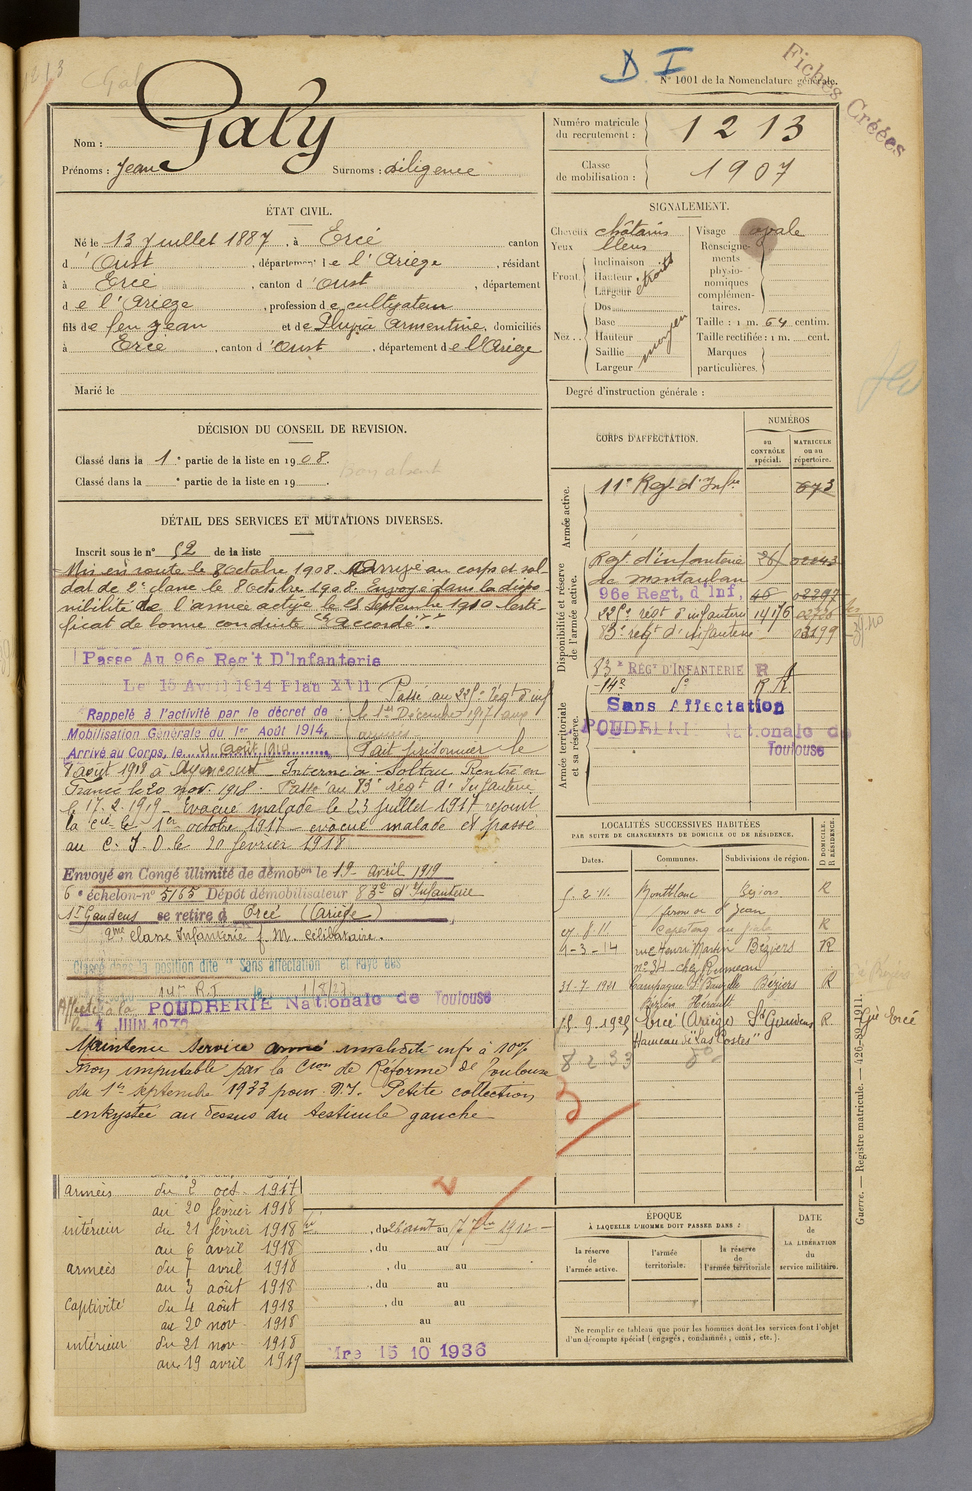 1213
D I
Fiches Créées
N° 1001 de la Nomenclature générale.
Nom : Galy
Prénoms : Jean Surnoms : diligence
Numéro matricule du recrutement : 1213
Classe de mobilisation : 1907
ÉTAT CIVIL.
Né le 13 Juillet 1887, à Ercé canton
d'Oust, département de l'Ariège, résidant
à Ercé, canton d'Oust, département
de l'Ariège, profession de cultivateur
fils de feu Jean et de Armentine, domiciliés
à Ercé, canton d'Oust, département de l'Ariège
Marié le
SIGNALEMENT.
Cheveux châtains
Yeux bleus
Front Inclinaison
Hauteur étroits
Largeur
Nez.. Dos
Base
Hauteur moyen
Saillie
Largeur
Visage ovale
Renseignements physionomiques complémentaires.
Taille : 1 m. 64 centim.
Taille rectifiée : 1 m. cent.
Marques particulières.
Degré d'instruction générale :
DÉCISION DU CONSEIL DE REVISION.
Classé dans la 1e partie de la liste en 1908.
Classé dans la e partie de la liste en 19
bon absent
DÉTAIL DES SERVICES ET MUTATIONS DIVERSES.
Inscrit sous le n° 52 de la liste
Mis en route le 8 Octobre 1908. Arrivé au corps et sol-
dat de 2e classe le 8 octobre 1908. Envoyé dans la dispo-
nibilité de l'armée active le 25 Septembre 1910 Certi-
ficat de bonne conduite "accordé".
Passé Au 96e Reg't D'Infanterie
Le 15 Avril 1914 Plan XVII
Passé au 225e Régt d'inf
le 1er Décembre 1917 aux
armées
Rappelé à l'activité par le décret de
Mobilisation Générale du 1er Août 1914,
Arrivé au Corps, le 4 août 1914
Fait prisonnier le
4 août 1918 à Interné à Soltau Rentré en
France le 20 nov. 1918. Passé au 83e régt d'Infanterie
le 17.2.1919 - Evacué malade le 23 juillet 1917 rejoint
la cie le 1er octobre 1917 - évacué malade et passé
au C.I.D. le 20 février 1918
Envoyé en Congé illimité de démobon le 19 avril 1919
6e échelon n° 5165 Dépôt démobilisateur 83e d'Infanterie
St Gaudens se retire à Ercé (Ariège)
2me classe Infanterie f. M. célibataire.
Classé dans la position dite "Sans affectation" et rayé des
14me R.I le 1/5/27
Affecté à la POUDRERIE Nationale de Toulouse
le 1 JUIN 1932
Maintenu service armé invalidité infr à 10%
non imputable par la Cion de Réforme de Toulouse
du 1er septembre 1933 pour: Petite collection
enkystée au dessus du testicule gauche
armées du 2 oct. 1917
au 20 février 1918
intérieur du 21 février 1918
au 6 avril 1918
armées du 7 avril 1918
au 3 août 1918
captivité du 4 août 1918
au 20 nov. 1918
intérieur du 21 nov. 1918
au 19 avril 1919
, du 26 aout au 17 7bre 1912
, du au
, du au
, du au
, du au
au
au
15 10 1936
CORPS D'AFFECTATION.
NUMÉROS
au CONTRÔLE spécial.
MATRICULE ou au répertoire.
Armée active.
11e Regt d'Infie 673
Disponibilité et réserve de l'armée active.
Regt d'infanterie 02043
de Montauban
96e Regt, d'Inf, 46 02297
225e régt d'infanterie 14176
83e régt d'infanterie
Armée territoriale et sa réserve.
83e RÉGt D'INFANTERIE R
14e do R
Sans Affectation
POUDRERIE Nationale de
Toulouse
LOCALITÉS SUCCESSIVES HABITÉES
PAR SUITE DE CHANGEMENTS DE DOMICILE OU DE RÉSIDENCE.
D DOMICILE.
R RÉSIDENCE.
Dates. Communes. Subdivisions de région.
5.2.11 Montblanc Béziers R
ferme de St Jean
27.8.11 Capestang R
9-3-14 rue Henri Martin Béziers R
n° 34 chez Rumeau
31.7.1921 Campagne Béziers R
Béziers Hérault
15.9.1925 Ercé (Ariège) St Gaudens R. Gie Ercé
Hameau de "Las Costes"
8 2 33
ÉPOQUE
À LAQUELLE L'HOMME DOIT PASSER DANS :
la réserve de l'armée active.
l'armée territoriale.
la réserve de l'armée territoriale
DATE de LA LIBÉRATION du service militaire.
Ne remplir ce tableau que pour les hommes dont les services font l'objet
d'un décompte spécial (engagés, condamnés, omis, etc.).
Guerre. — Registre matricule. — 426-89-1911.